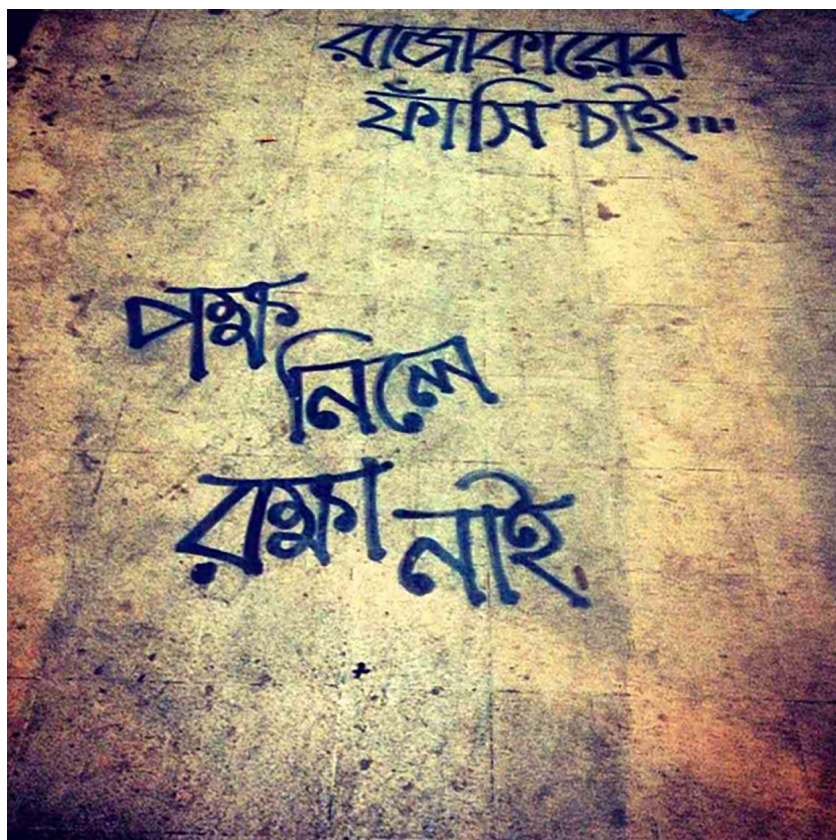 রাজাকারের
ফাঁসি চাই...
পক্ষ
নিলে
রক্ষা নাই